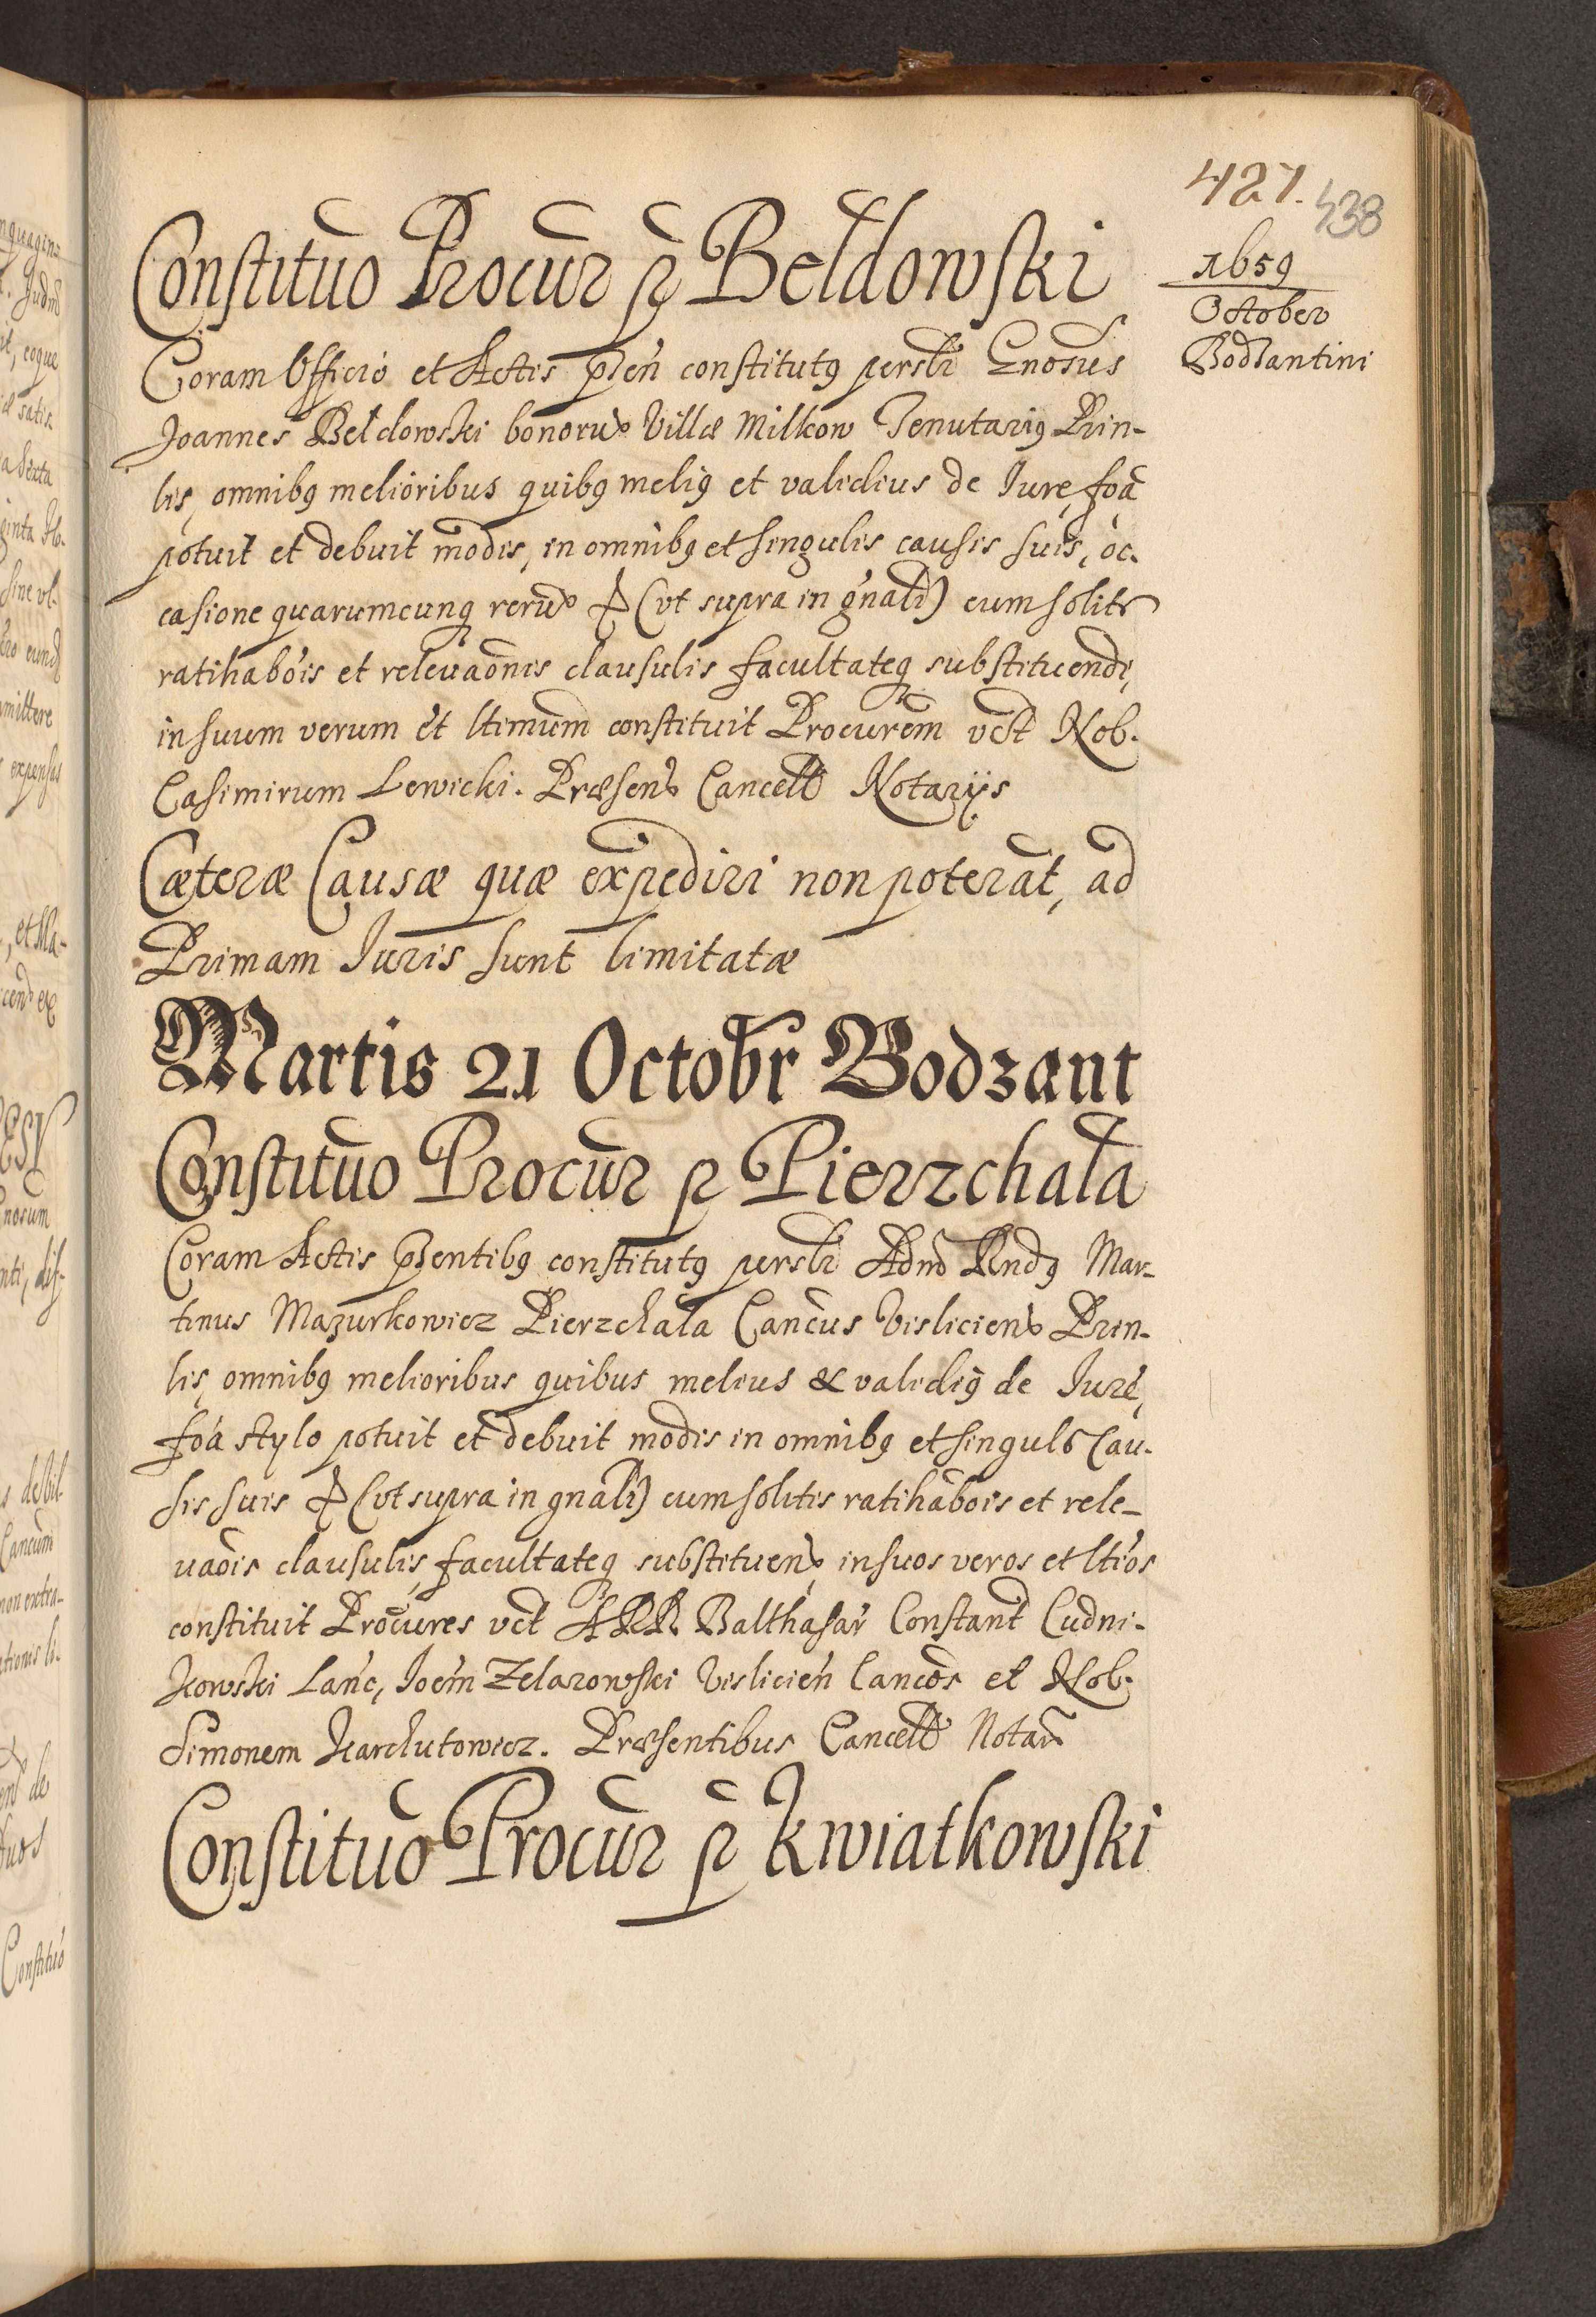 427.
438
1659
October
Bodzantini
Constituo Procur p Bełdowski
Coram Officio et Actis pñtń constitutg perslr Gnosus
Joannes Bełdowski bonorum Villæ Milkow Tenutarig Prin-
lis, omnibg melioribus quibg melig et validius de Iure, foã
potuit et debuit modis, in omnibg et singulis causis suis, oc-
casione quarumcunq rerum & (vt supra in gnali) cum solits
ratihabois et relevaõnis clausulis facultateq substituendi,
in suum verum et ltimum constituit Procurem vdt Nob.
Casimirum Lewicki. Præsen Cancell Notarijs
Cæteræ Causæ quæ expediri non poterãt, ad
Primam Iuris sunt limitatæ
Martis 21 Octobr Bodzant
Constituo Procur p Pierzchała
Coram Actis pñtibg constitutg perslr Adm Rndg Mar-
tinus Mazurkowicz Pierzchała Cancus Visliciens Prin-
lis, omnibg melioribus quibus melius & validig de Iure,
foã stylo potuit et debuit modis in omnibg et singuls Cau-
sis suis & (vt supra in gnali) cum solitis ratihabois et rele-
vaõis clausulis, facultateq substituen, in suos veros et ltios
constituit Procures vdt ARR Balthasar Constant Cudni-
kowski Lanc, Joem Zelazowski Vislicien Cancos et Nob.
Simonem Karchutowicz. Præsentibus Cancell Notar
Constituo Procur p Kwiatkowski